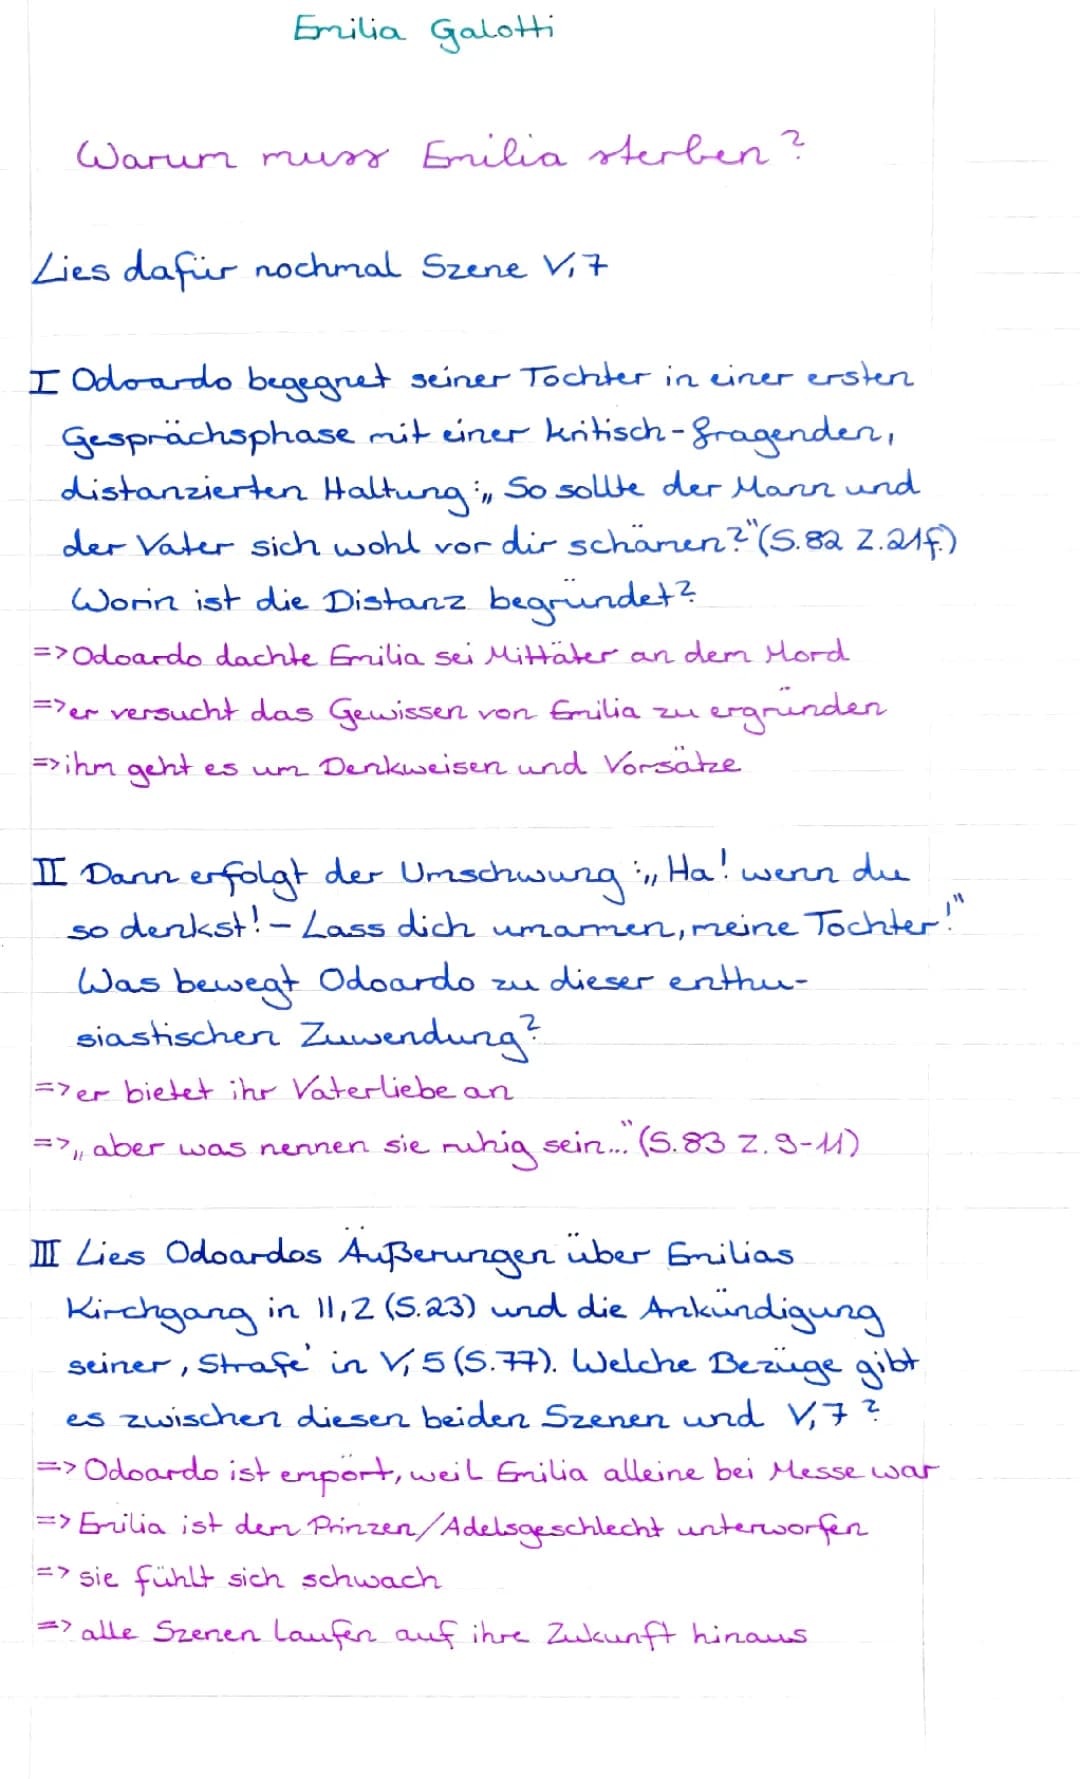 Emilia Galotti
Warum muss Emilia sterben?
Lies dafür nochmal Szene V,7
I Odoardo begegnet seiner Tochter in einer ersten
Gesprächsphase mit einer kritisch-fragenden,
distanzierten Haltung: „So sollte der Mann und
der Vater sich wohl vor dir schämen?" (S.82 Z.21f.)
Worin ist die Distanz begründet?
=> Odoardo dachte Emilia sei Mittäter an dem Mord
=> er versucht das Gewissen von Emilia zu ergründen
=> ihm geht es um Denkweisen und Vorsätze
II Dann erfolgt der Umschwung: „Ha! wenn du
so denkst! - Lass dich umarmen, meine Tochter!"
Was bewegt Odoardo zu dieser enthu-
siastischen Zuwendung?
=> er bietet ihr Vaterliebe an
=> „aber was nennen sie ruhig sein..." (S.83 Z.9-11)
III Lies Odoardos Äußerungen über Emilias
Kirchgang in II,2 (S.23) und die Ankündigung
seiner ‚Strafe' in V,5 (S.77). Welche Bezüge gibt
es zwischen diesen beiden Szenen und V,7?
=> Odoardo ist empört, weil Emilia alleine bei Messe war
=> Emilia ist dem Prinzen/Adelsgeschlecht unterworfen
=> sie fühlt sich schwach
=> alle Szenen laufen auf ihre Zukunft hinaus